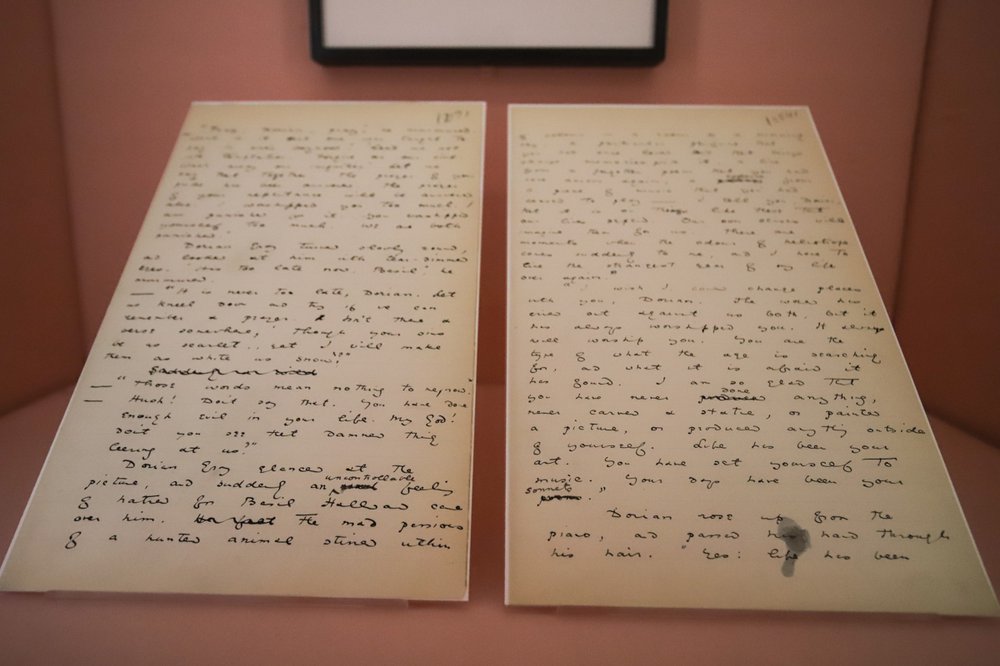 "Pray, Dorian, pray," he murmured.
"What is it that one was taught to
say in one's boyhood? 'Lead us not
into temptation. Forgive us our sins.
Wash away our iniquities.' Let us
say that together. The prayer of your
pride has been answered. The prayer
of your repentance will be answered
also. I worshipped you too much. I
am punished for it. You worshipped
yourself too much. We are both
punished."
Dorian Gray turned slowly round,
and looked at him with tear-dimmed
eyes. "It is too late now, Basil," he
murmured.
— "It is never too late, Dorian. Let
us kneel down and try if we can
remember a prayer. Isn't there a
verse somewhere, 'Though your sins
be as scarlet, yet I will make
them as white as snow'?"
— "Those words mean nothing to me now."
— "Hush! Don't say that. You have done
enough evil in your life. My God!
don't you see that damned thing
leering at us?"
Dorian Gray glanced at the
picture, and suddenly an uncontrollable feeling
of hatred for Basil Hallward came
over him. He felt The mad passions
of a hunted animal stirred within
of colour in a room or a morning
sky, a particular perfume that
you had once loved and that brings
strange memories with it, a line
from a forgotten poem that you had
come across again, a cadence from
a piece of music that you had
ceased to play — I tell you, Dorian,
that it is on things like these that
our lives depend. Our own senses will
imagine them for us. There are
moments when the odour of heliotrope
comes suddenly to me, and I have to
live the strangest year of my life
over again."
"I wish I could change places
with you, Dorian. The world has
cried out against us both, but it
has always worshipped you. It always
will worship you. You are the
type of what the age is searching
for, and what it is afraid it
has found. I am so glad that
you have never done anything,
never carved a statue, or painted
a picture, or produced anything outside
of yourself. Life has been your
art. You have set yourself to
music. Your days have been your
sonnets."
Dorian rose up from the
piano, and passed his hand through
his hair. "Yes: life has been